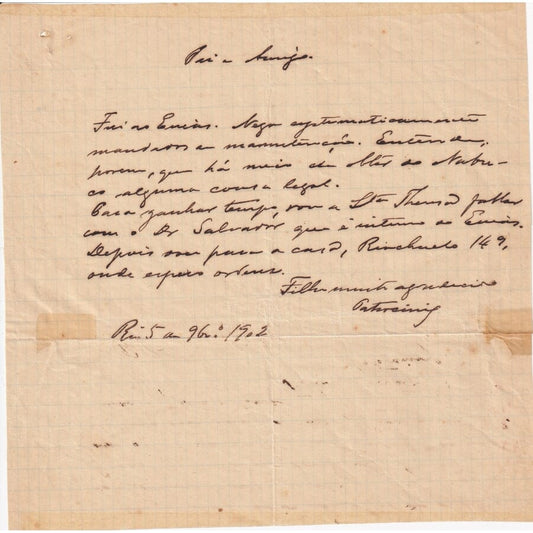 Pai e Amigo.
Fui ao Eneas. Nega systematicamente
mandados de manutenção. Entende,
porem, que há meio de obter do Nabu-
co alguma cousa legal.
Para ganhar tempo, vou a Sta Thereza fallar
com o Dr Salvador que é intimo do Eneas.
Depois vou para a casa, Riachuelo 149,
onde espero ordens.
Filho muito agradecido
Patrocinio
Rio 5 de 9bro 1902